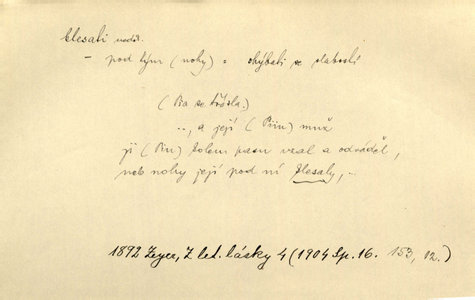 klesati nedok.
– pod kým (nohy) : chýbati se slabostí
(Pia se třásla.)
..., a její (Piin) muž
ji (Piu) kolem pasu vzal a odváděl,
neb nohy její pod ní klesaly, ...
1892 Zeyer, Z let. lásky 4 (1904 Sp. 16. 153, 12.)